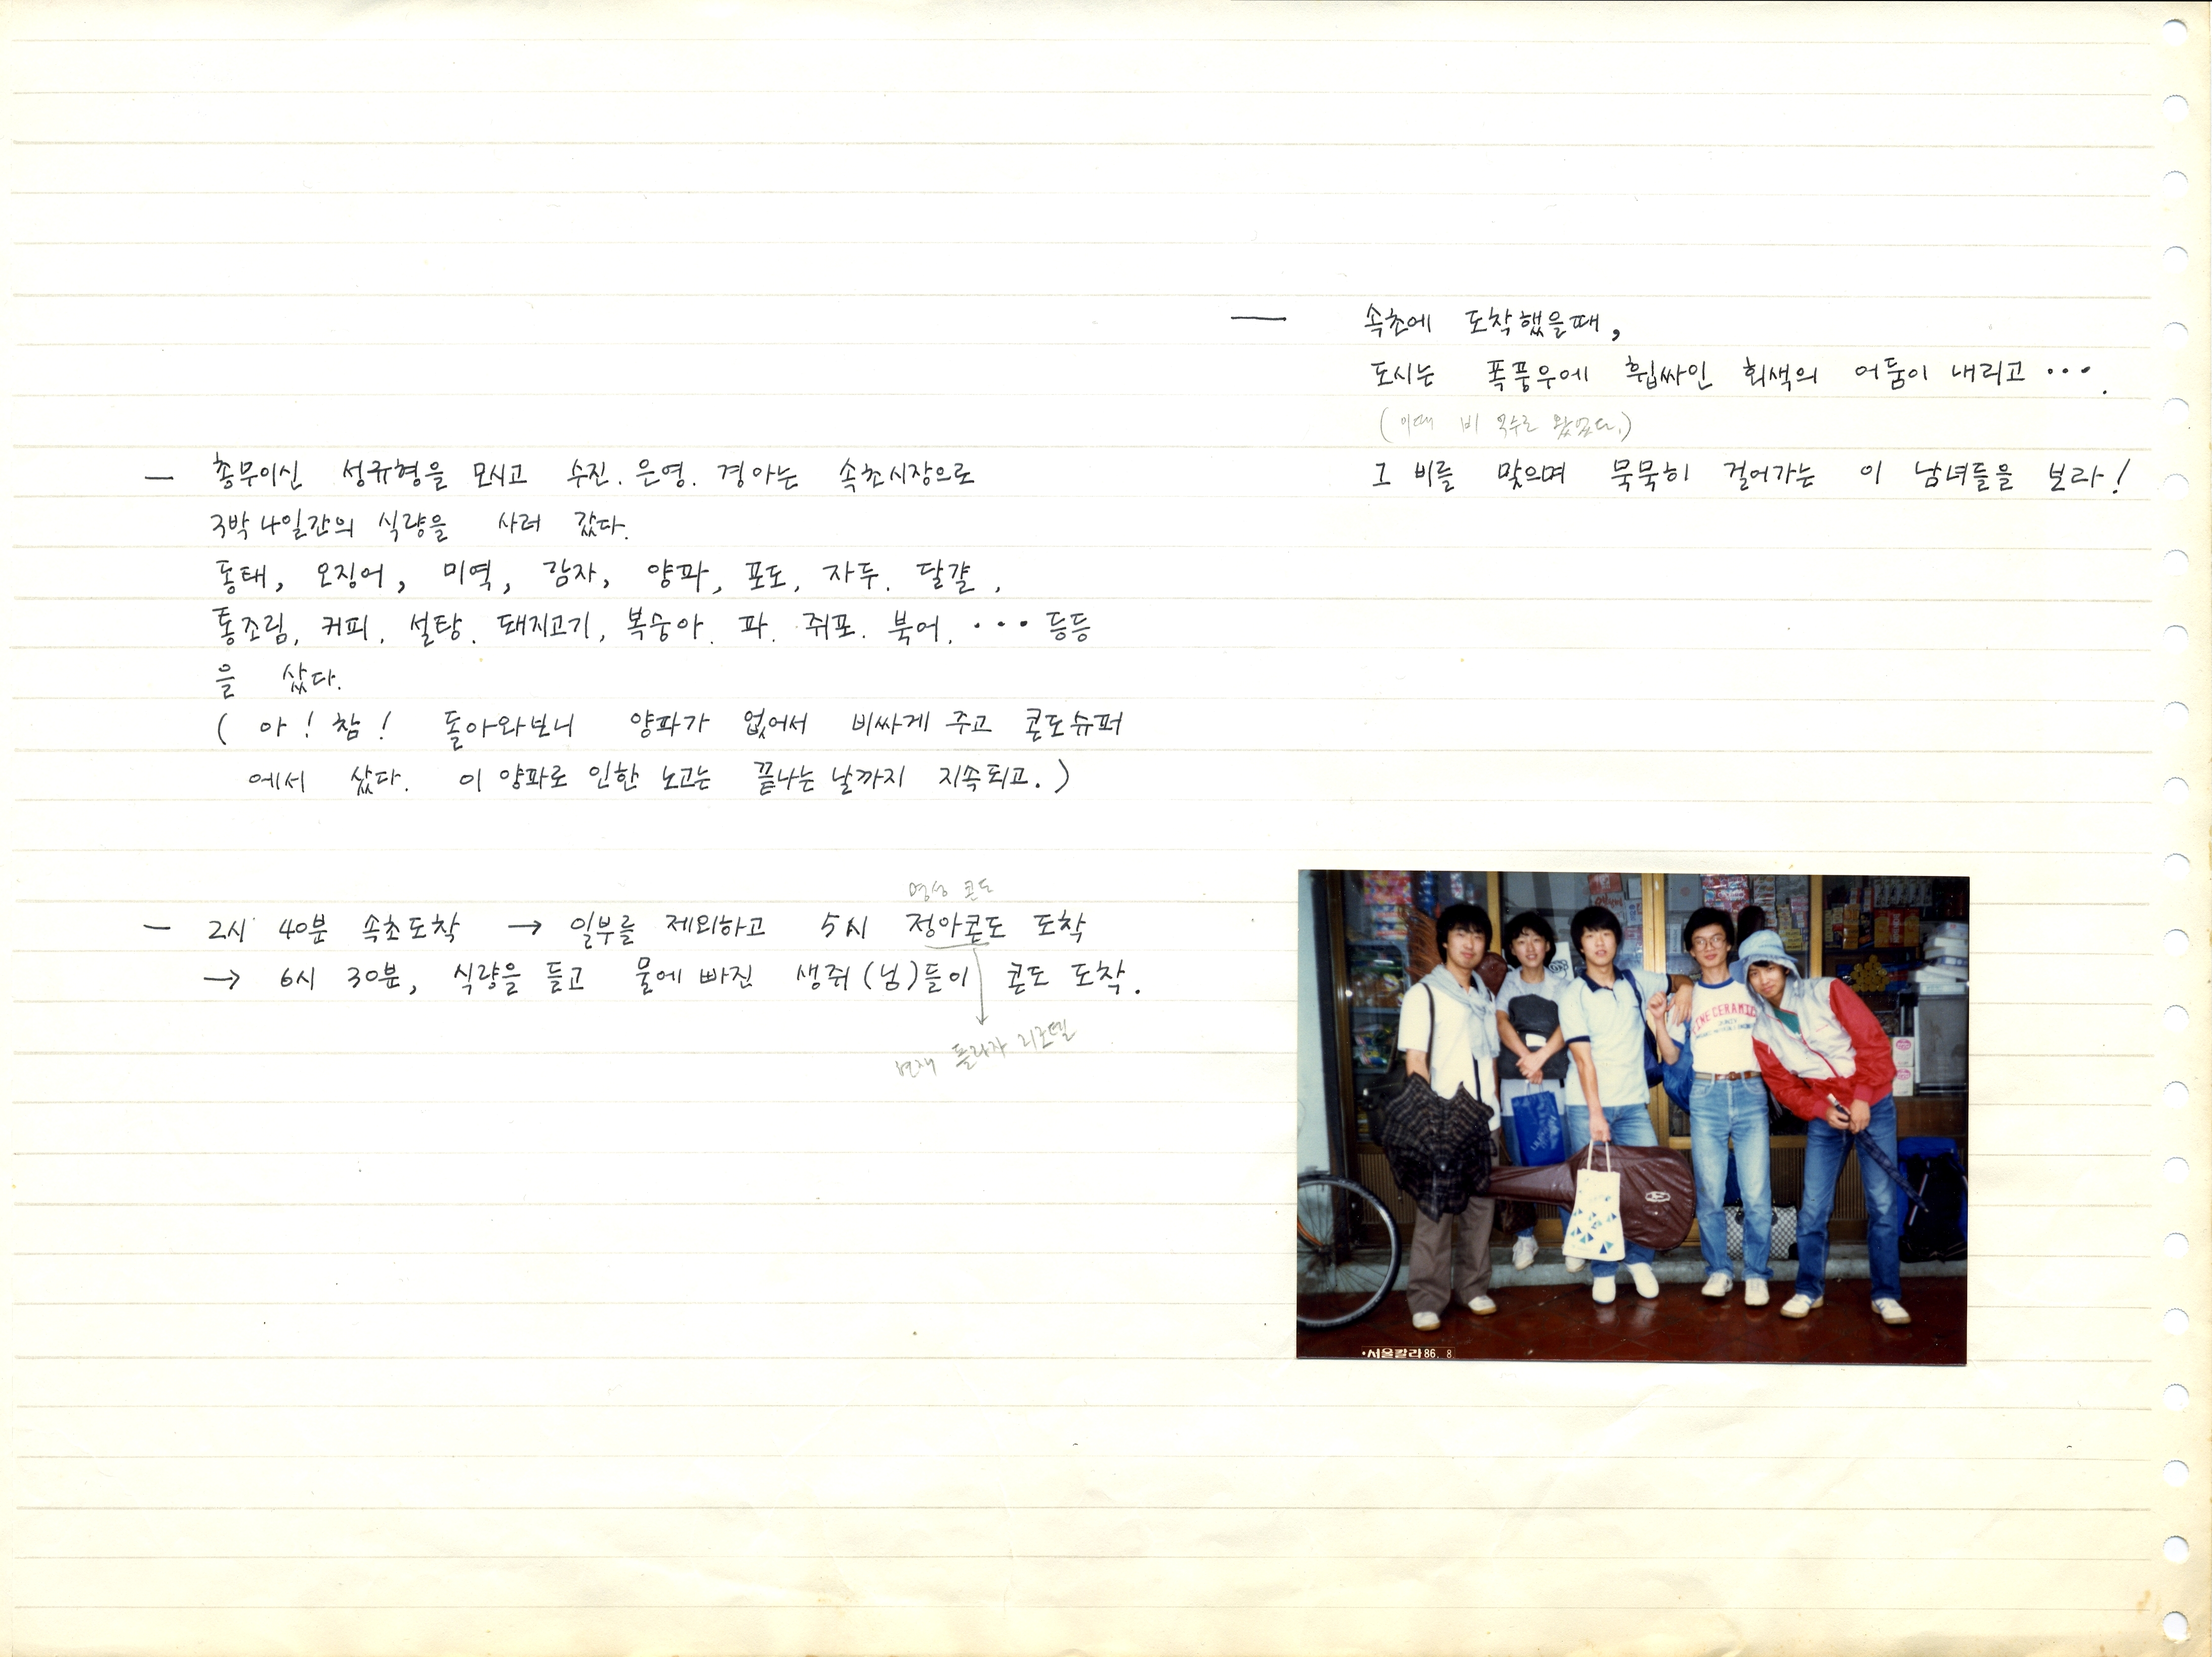 — 총무이신 성규형을 모시고 수진. 은영. 경아는 속초시장으로
3박 4일간의 식량을 사러 갔다.
동태, 오징어, 미역, 감자, 양파, 포도, 자두. 달걀,
통조림, 커피, 설탕. 돼지고기, 복숭아. 파. 쥐포. 북어. ··· 등등
을 샀다.
( 아! 참! 돌아와보니 양파가 없어서 비싸게 주고 콘도슈퍼
에서 샀다. 이 양파로 인한 노고는 끝나는 날까지 지속되고.)
명성 콘도
— 2시 40분 속초도착 → 일부를 제외하고 5시 정아콘도 도착
→ 6시 30분, 식량을 들고 물에 빠진 생쥐(님)들이 콘도 도착.
현재 플라자 리조텔
— 속초에 도착했을때,
도시는 폭풍우에 휩싸인 회색의 어둠이 내리고 ···.
(이때 비 억수로 왔었다.)
그 비를 맞으며 묵묵히 걸어가는 이 남녀들을 보라!
FINE CERAMIC
·서울칼라 86. 8